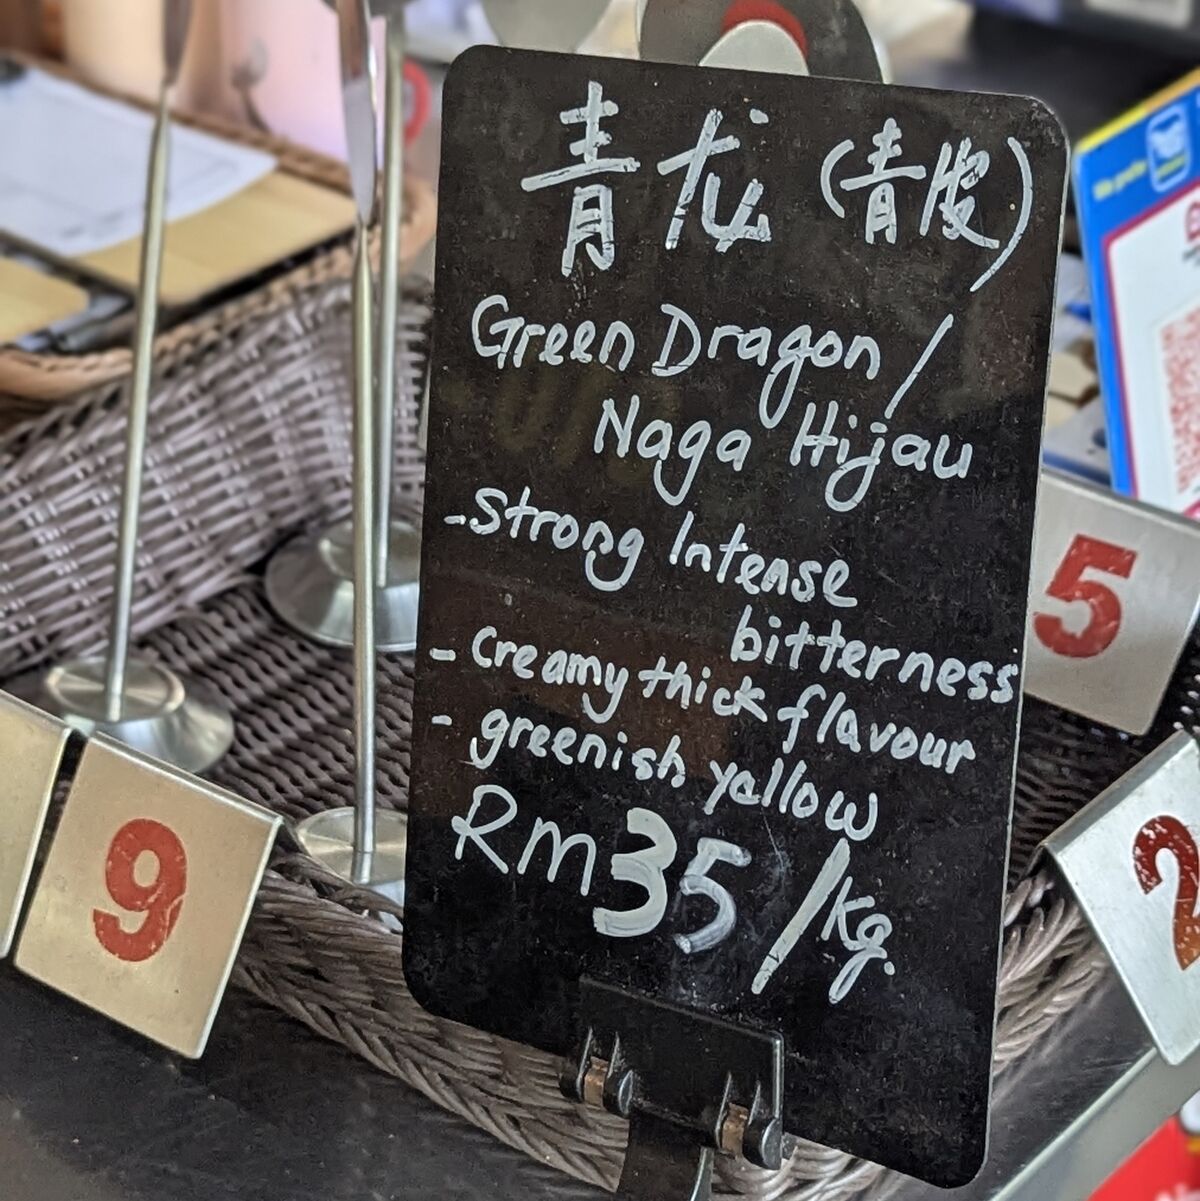 青龙 (青皮)
Green Dragon /
Naga Hijau
- strong Intense
bitterness
- creamy thick flavour
- greenish yellow
RM35/kg.
5
9
2